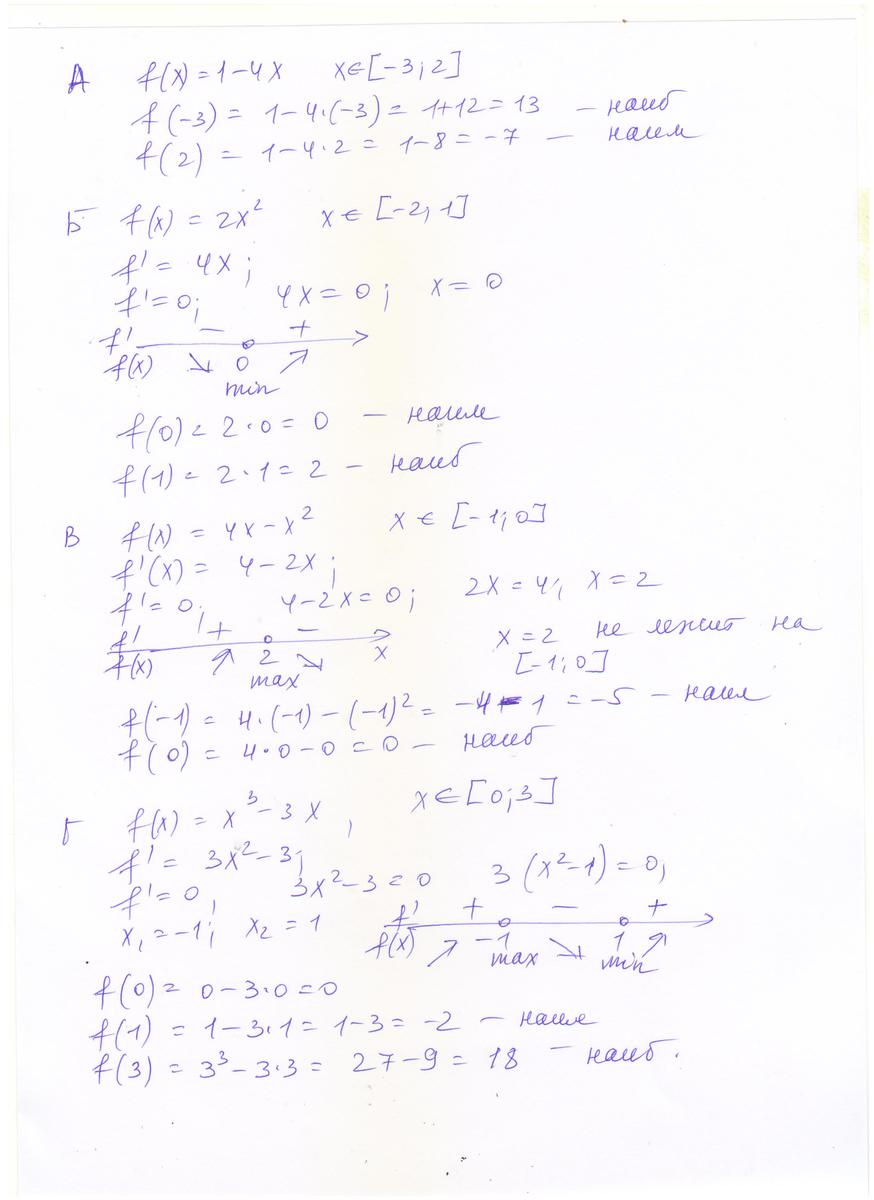 А f(x) = 1 - 4x x ∈ [-3; 2]
f(-3) = 1 - 4·(-3) = 1 + 12 = 13 — наиб
f(2) = 1 - 4·2 = 1 - 8 = -7 — наим
Б f(x) = 2x² x ∈ [-2; 1]
f' = 4x;
f' = 0; 4x = 0; x = 0
f' - +
f(x) ↘ 0 ↗
min
f(0) = 2·0 = 0 — наим
f(1) = 2·1 = 2 — наиб
В f(x) = 4x - x² x ∈ [-1; 0]
f'(x) = 4 - 2x;
f' = 0; 4 - 2x = 0; 2x = 4; x = 2
f' + - x = 2 не лежит на
f(x) ↗ 2 ↘ x [-1; 0]
max
f(-1) = 4·(-1) - (-1)² = -4 - 1 = -5 — наим
f(0) = 4·0 - 0 = 0 — наиб
Г f(x) = x³ - 3x, x ∈ [0; 3]
f' = 3x² - 3;
f' = 0, 3x² - 3 = 0 3(x² - 1) = 0;
x₁ = -1; x₂ = 1 f' + - +
f(x) ↗ -1 ↘ 1 ↗
max min
f(0) = 0 - 3·0 = 0
f(1) = 1 - 3·1 = 1 - 3 = -2 — наим
f(3) = 3³ - 3·3 = 27 - 9 = 18 — наиб.